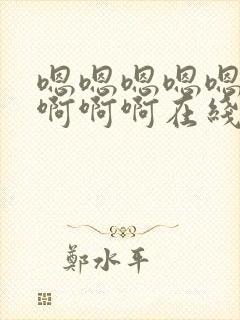 嗯嗯嗯嗯嗯
啊啊啊在綫
鄭水平